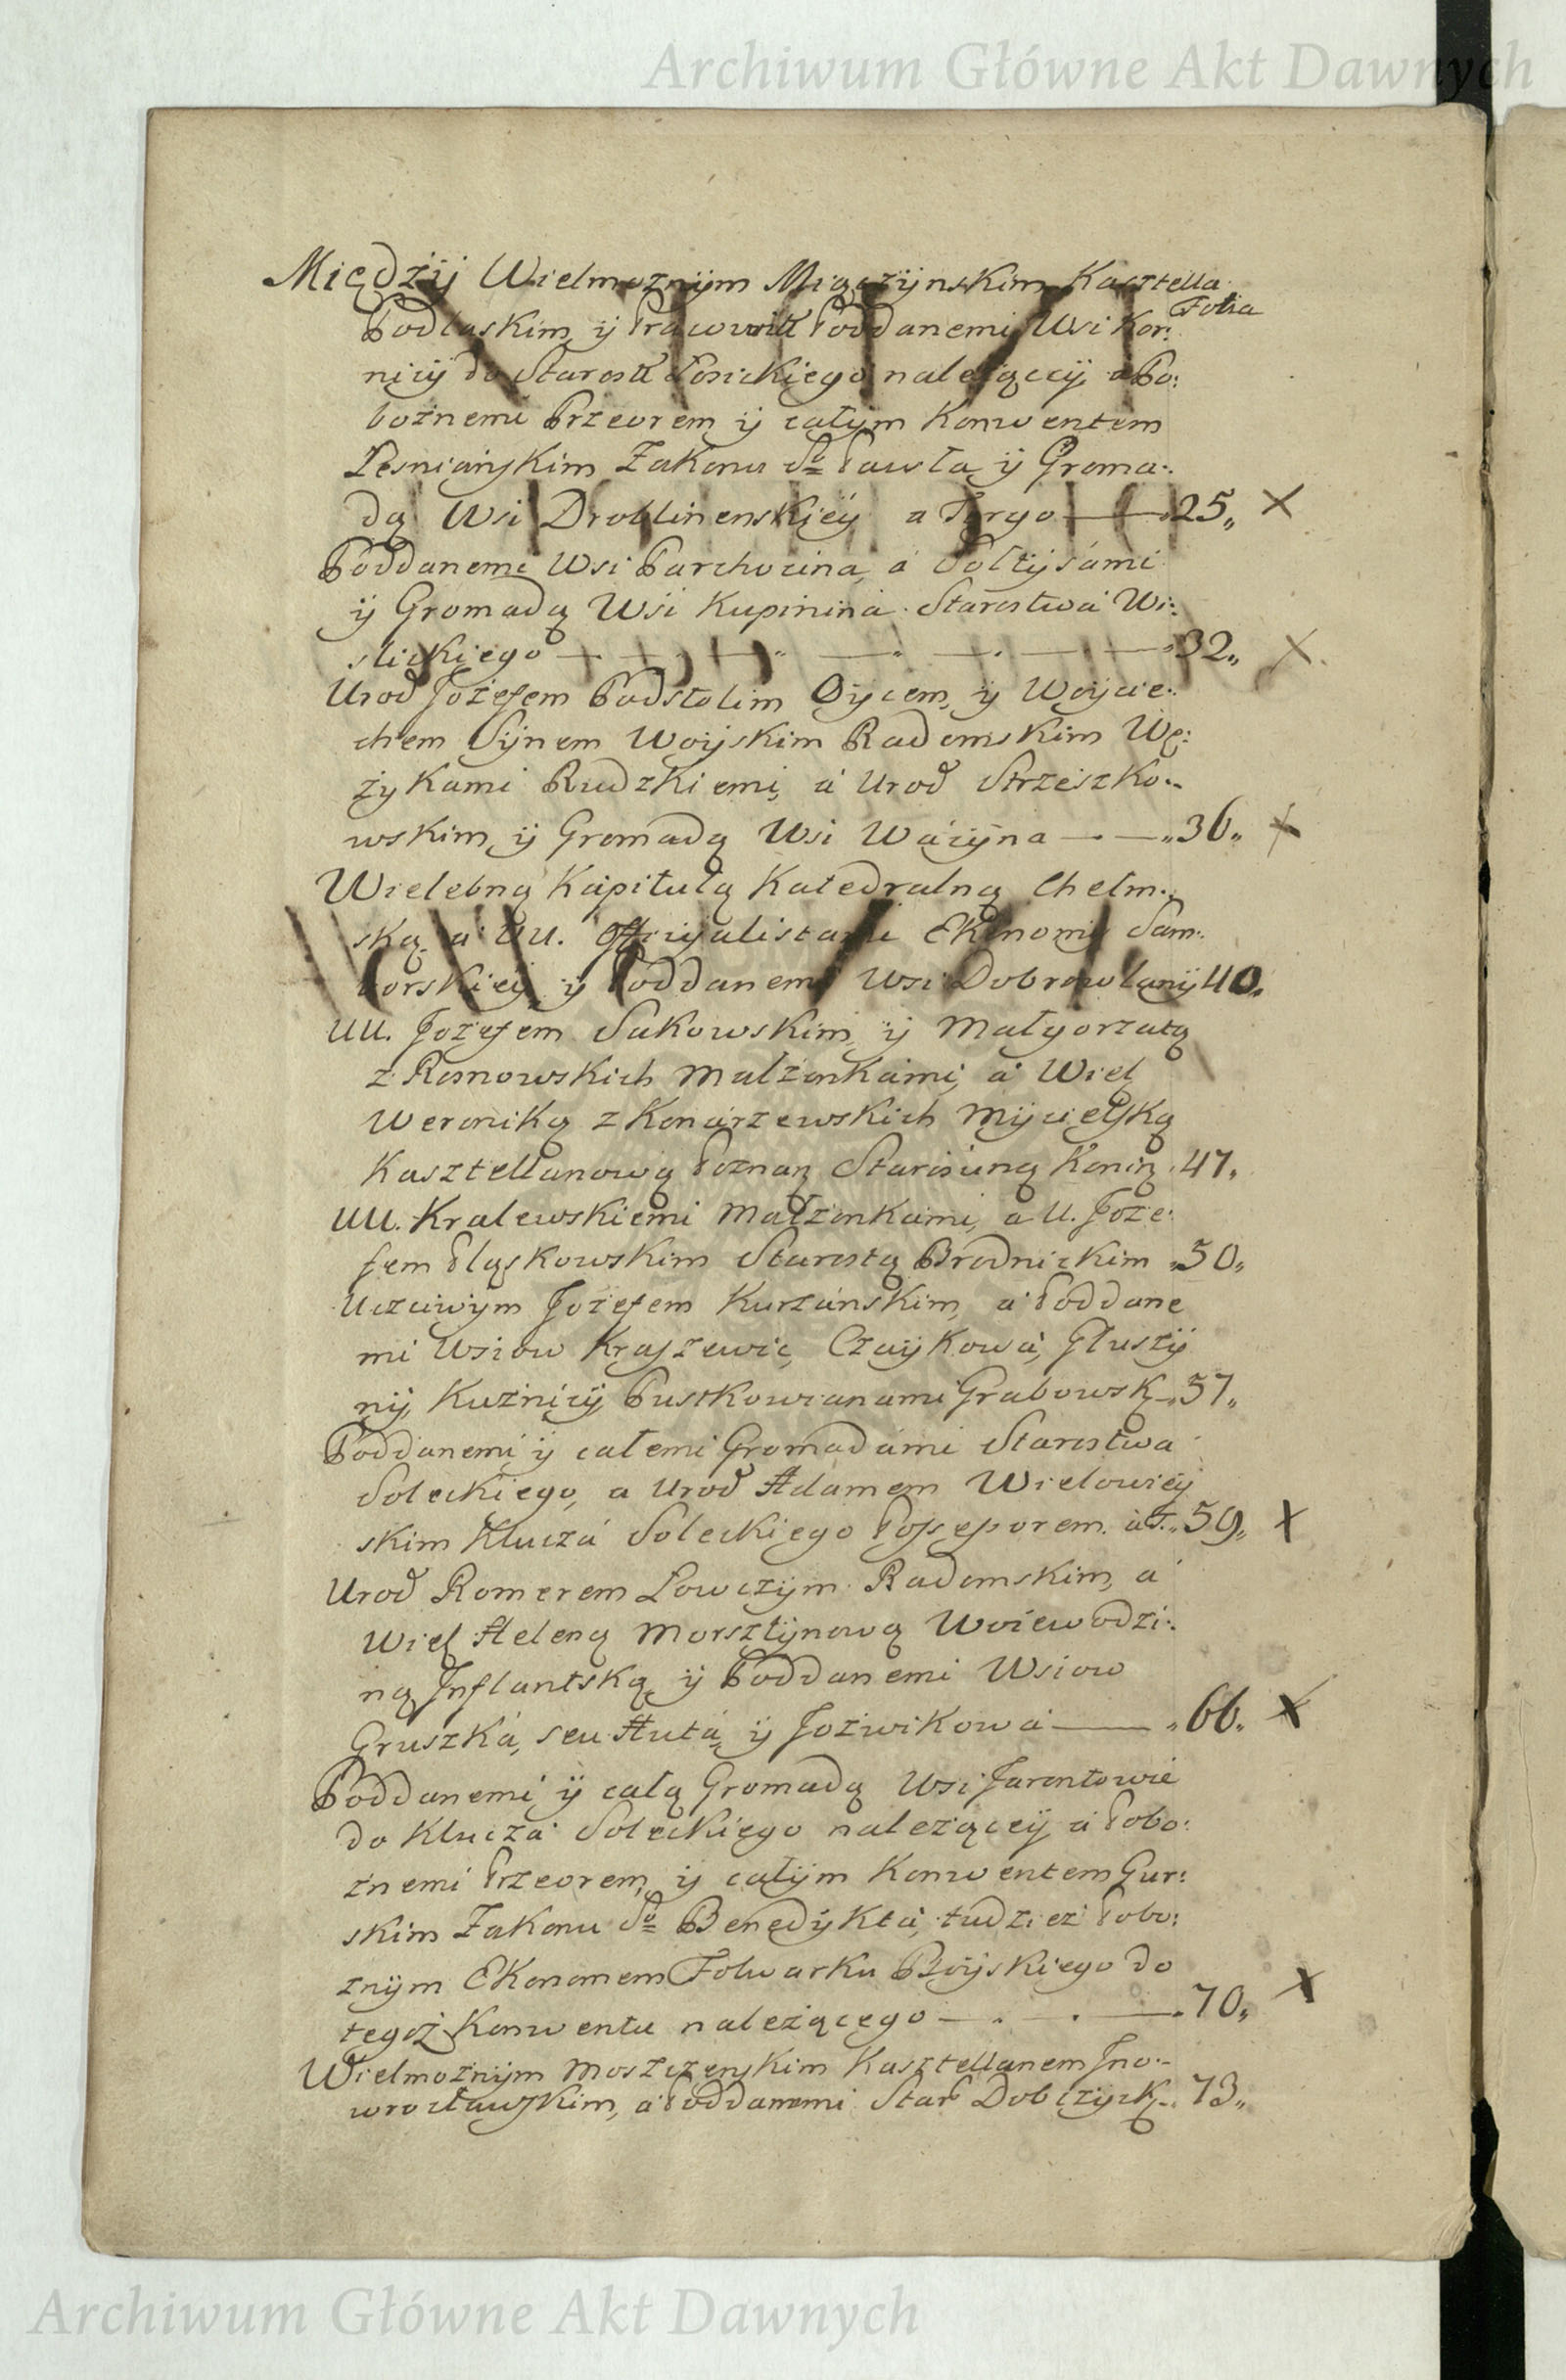 Archiwum Główne Akt Dawnych
Między Wielmoznym Miączynskim Kasztella
Folia
Podlaskim, y Pracowitt Poddanemi Wsi Kor:
nicy do Starostt Łosickiego należącey a Po:
bożnemi Przeorem y całym Konwentem
Lesnianskim Zakonu So Pawła y Groma:
dą Wsi Droblinenskiey a Tergo 25,, X
Poddanemi Wsi Parchocina, a Sołtysami
y Gromadą Wsi Kupinina Starostwa Wi:
slickiego 32,, X
Urod Jozefem Podstolim Oycem, y Woycie:
chem Synem Woyskim Radomskim Wę:
żykami Rudzkiemi, a Urod Strzeszko:
wskim, y Gromadą Wsi Wácyna 36,, X
Wielebną Kapitułą Katedralną Chełm:
ską, a UU. Officyalistami Ekonomii Sam:
borskiey y Poddanemi Wsi Dobrowlany 40,
UU. Jozefem Sakowskim y Małgorzatą
z Rosnowskich Małżonkami, a Wiel
Weroniką z Konarzewskich Mycielską
Kasztellanową Poznan Starosiną Konin 47,
UU. Kralewskiemi Małżonkami, a U. Joze:
fem Pląskowskim Starostą Brodnickim 50,,
Uczciwym Jozefem Kurzánskim, a Poddane
mi Wsiow Kraszewic, Czaykowa, Głuszy
ny, Kuznicy Pustkowianami Grabowsk 57,,
Poddanemi y całemi Gromadami Starostwa
Soleckiego, a Urod Adamem Wielowiey
skim Klucza Soleckiego Possessorem. aT. 59,, X
Urod Romerem Łowczym Radomskim, a
Wiel Heleną Morsztynową Woiewodzi:
ną Inflantską, y Poddanemi Wsiow
Gruszka, seu Huta, y Jozwikowa 66,, X
Poddanemi y całą Gromadą Wsi Jarentowic
do Klucza Soleckiego należącey a Pobo:
żnemi Przeorem, y całym Konwentem Gur:
skim Zakonu So Benedykta, tudziez Pobo:
żnym Ekonomem Folwarku Boyskiego do
tegoż Konwentu należącego 70,, X
Wielmożnym Moszczenskim Kasztellanem Ino:
wrocławskim, a Poddanemi Star Dobczyck 73,,
Archiwum Główne Akt Dawnych